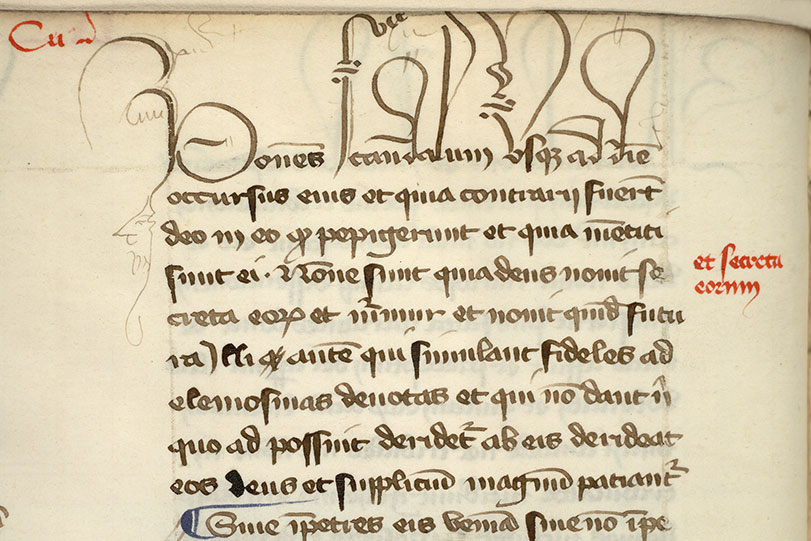 Cū
Ponēs scandalum vsqꝫ ad diē
occursus eius et quia contrarij fuerūt
deo in eo qꝫ pepigerunt et quia mētiti
sunt ei · Nōne sunt quia deus nouit se
creta eoꝝ et mūmur et nouit quid futu
ra) Illi autē qui simulant fideles ad
elemosinas deuotas et qui nō dant ni
quo ad possunt deridēt ab eis derideat
eos deus et suppliciū magnū patiant᷑
Siue īpetres eis veniā siue nō īpe
et secreta
eorum